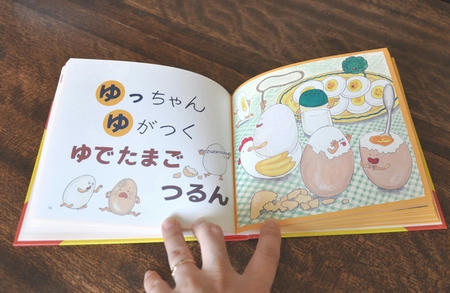 ゆっちゃん
ゆがつく
ゆでたまご
つるん